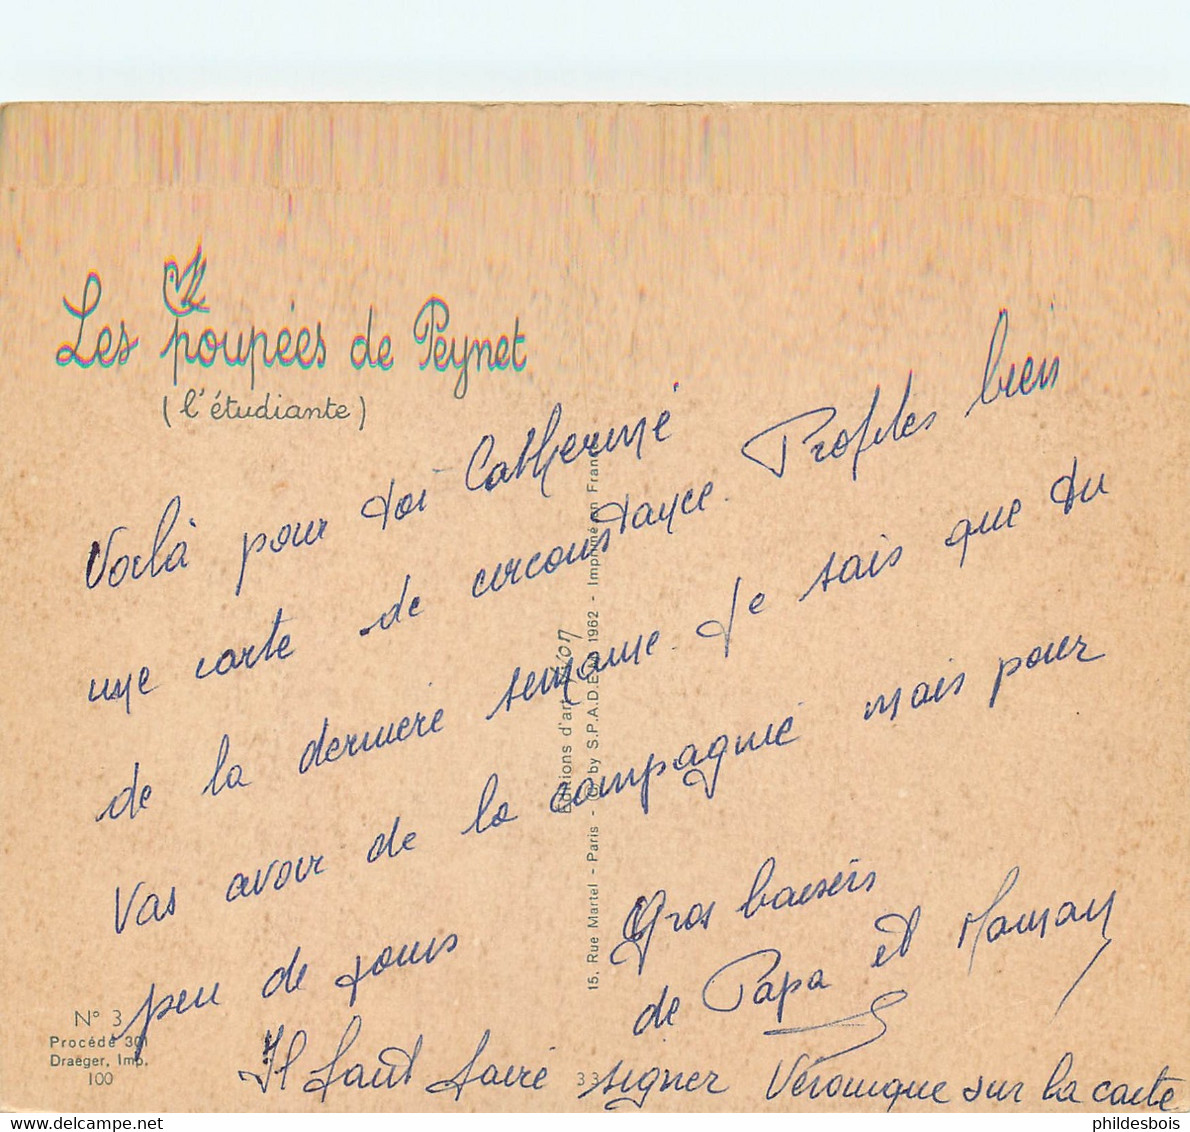 Les poupées de Peynet
(l'étudiante)
Voilà pour toi Catherine
une carte de circonstance. Profites bien
de la dernière semaine. Je sais que tu
vas avoir de la compagnie mais pour
peu de jours Gros baisers
de Papa et Maman
Il faut faire signer Véronique sur la carte
Editions d'art
15, Rue Martel - Paris - © by S.P.A.D.E.M. 1962 - Imprimé en France
N° 3
Procédé 301
Draeger, Imp.
100
33
phildesbois